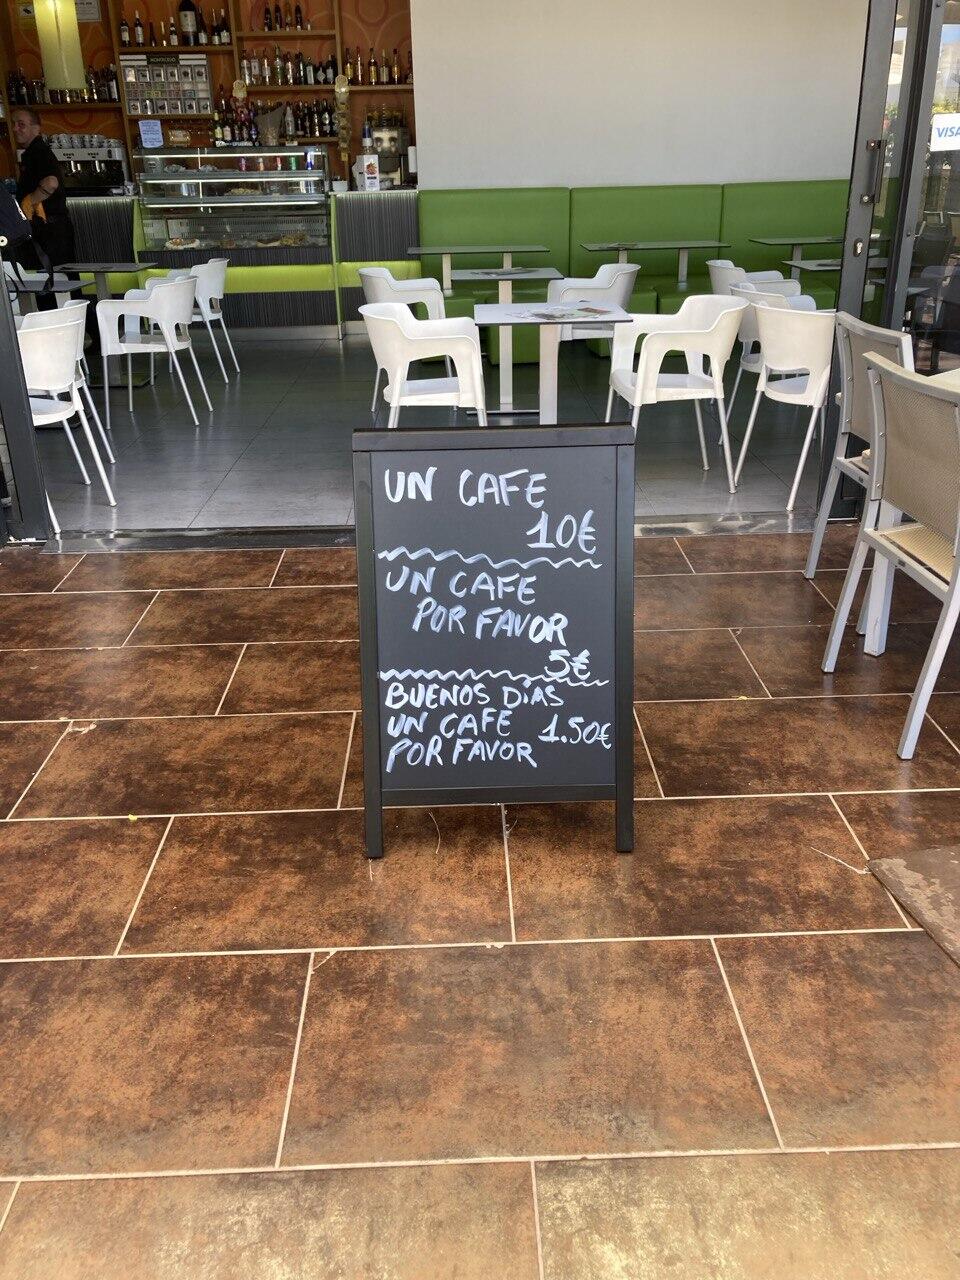 UN CAFE
10€
UN CAFE
POR FAVOR
5€
BUENOS DíAS
UN CAFE 1.50€
POR FAVOR
VISA